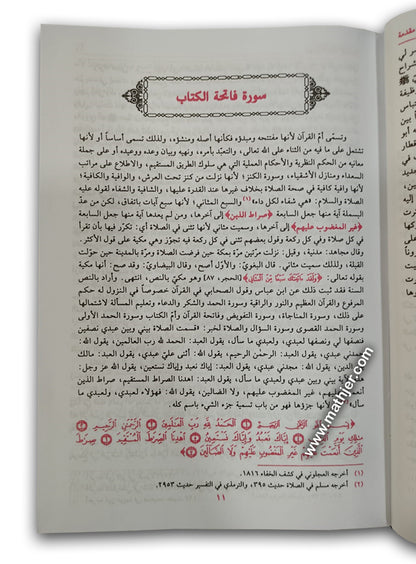 سورة فاتحة الكتاب
وتسمّى أمّ القرآن لأنها مفتتحه ومبدؤه فكأنها أصله ومنشؤه، ولذلك تسمى أساساً أو لأنها
تشتمل على ما فيه من الثناء على الله تعالى، والتعبّد بأمره، ونهيه وبيان وعده ووعيده أو على جملة
معانيه من الحكم النظرية والأحكام العملية التي هي سلوك الطريق المستقيم، والاطلاع على مراتب
السعداء ومنازل الأشقياء، وسورة الكنز؛ لأنها نزلت من كنز تحت العرش، والوافية والكافية؛
لأنها وافية كافية في صحة الصلاة بخلاف غيرها عند القدرة عليها، والشافية والشفاء لقوله عليه
الصلاة والسلام: «هي شفاء لكل داء»(١) والسبع المثاني؛ لأنها سبع آيات باتفاق، لكن من عدّ
البسملة آية منها جعل السابعة ﴿صراط الذين﴾ إلى آخرها، ومن لم يعدها آية منها جعل السابعة
﴿غير المغضوب عليهم﴾ إلى آخرها، وسميت مثاني لأنها تثنى في الصلاة أي: تكرّر فيها بأن تقرأ
في كل صلاة وفي كل ركعة وقول بعضهم تثنى في كل ركعة فيه تجوّز وهي مكية على قول الأكثر.
وقال مجاهد: مدنية، وقيل: نزلت مرّتين مرّة بمكة حين فرضت الصلاة ومرّة بالمدينة حين حوّلت
القبلة، ولذلك سميت مثاني. قال البغويّ: والأوّل أصح، وقال البيضاويّ: وقد صح: أنها مكية
بقوله تعالى: ﴿وَلَقَدْ ءَاتَيْنَاكَ سَبْعًا مِّنَ ٱلْمَثَانِي﴾ [الحجر، ٨٧] وهو مكيّ بالنص، انتهى. وأراد بالنص
السنة فقد ثبت ذلك عن ابن عباس وقول الصحابي في القرآن خصوصاً في النزول له حكم
المرفوع والقرآن العظيم والنور والراقية وسورة الحمد والشكر والدعاء وتعليم المسألة لاشتمالها
على ذلك، وسورة المناجاة، وسورة التفويض وفاتحة القرآن وأمّ الكتاب وسورة الحمد الأولى
وسورة الحمد القصوى وسورة السؤال والصلاة لخبر: «قسمت الصلاة بيني وبين عبدي نصفين
فنصفها لي ونصفها لعبدي، ولعبدي ما سأل، يقول العبد: الحمد لله رب العالمين، يقول الله:
حمدني عبدي، يقول العبد: الرحمن الرحيم، يقول الله: أثنى عليّ عبدي، يقول العبد: مالك
يوم الدين، يقول الله: مجدني عبدي، يقول العبد: إياك نعبد وإياك نستعين، يقول الله عز وجل:
آية بيني وبين عبدي ولعبدي ما سأل، يقول العبد: اهدنا الصراط المستقيم، صراط الذين
أنعمت عليهم، غير المغضوب عليهم، ولا الضالين، يقول الله: فهؤلاء لعبدي، ولعبدي ما
سأل» لأنها جزؤها فهو من باب تسمية جزء الشيء باسم كله.
﴿بسم الله الرحمن الرحيم ۝ الحمد لله رب العالمين ۝ الرحمن الرحيم ۝
مالك يوم الدين ۝ إياك نعبد وإياك نستعين ۝ اهدنا الصراط المستقيم ۝ صراط
الذين أنعمت عليهم غير المغضوب عليهم ولا الضالين ۝﴾
(١) أخرجه العجلوني في كشف الخفاء ١٨١٦.
(٢) أخرجه مسلم في الصلاة حديث ٣٩٥، والترمذي في التفسير حديث ٢٩٥٣
١١
www.mather.com
مقدمة